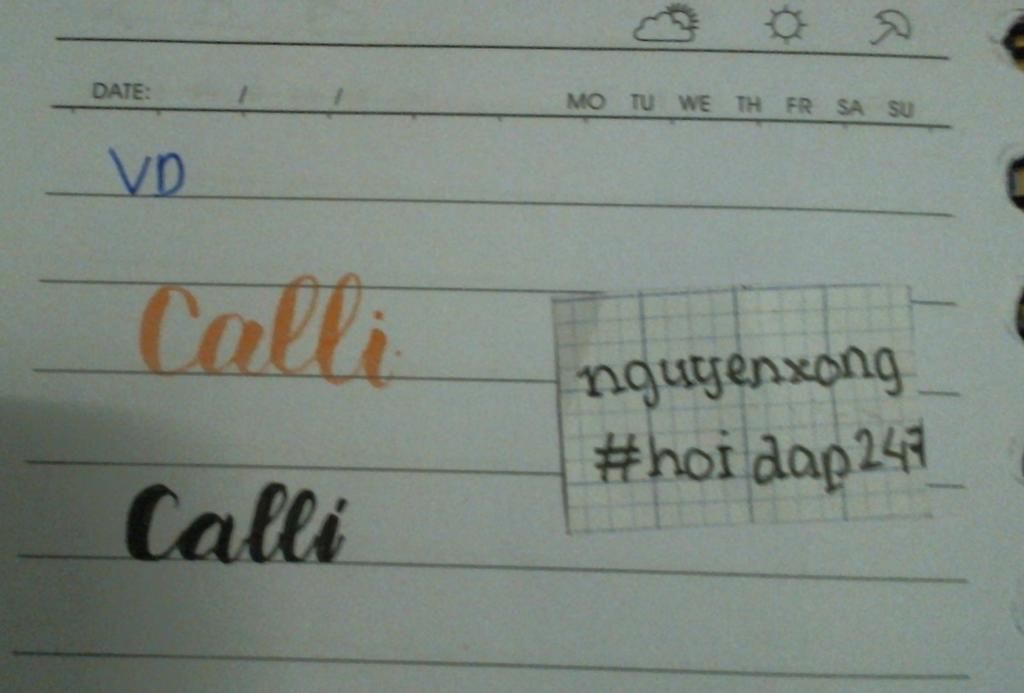 DATE: / / MO TU WE TH FR SA SU
VD
Calli
nguyenxong
#hoidap247
Calli